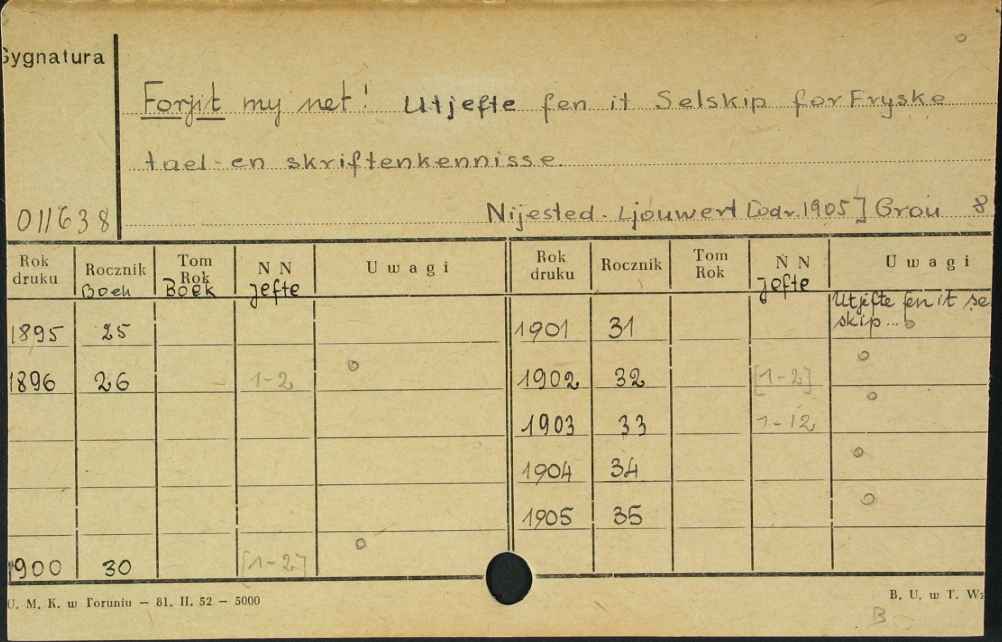 Sygnatura
Forjit my net! Utjefte fen it Selskip for Fryske
tael- en skriftenkennisse.
011638
Nijested. Ljouwert [odr. 1905] Grou 8
Rok druku Rocznik Tom Rok N N Uwagi Rok druku Rocznik Tom Rok N N Uwagi
Boek Boek jefte jefte Utjefte fen it se
skip...
1895 25 1901 31
1896 26 1-2 1902 32 [1-2]
1903 33 1-12
1904 34
1905 35
1900 30 [1-2]
U. M. K. w Toruniu — 81. II. 52 — 5000
B. U. w T. Wz
B